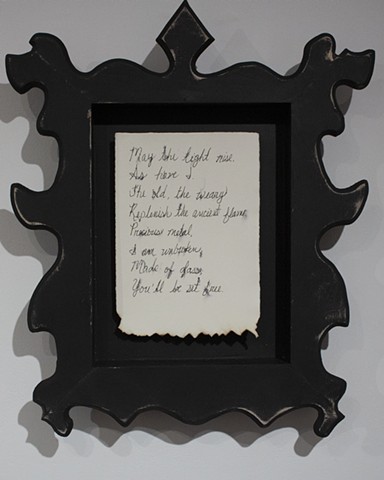 May the light rise.
As have I
The old, the weary
Replenish the ancient flame,
Princess metal,
I am unbroken,
Made of glass,
You'll be set free.